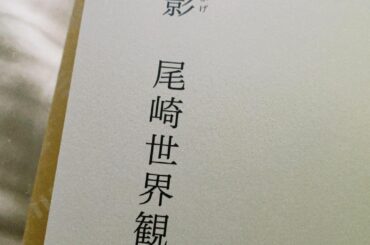 影
げ
尾崎世界観